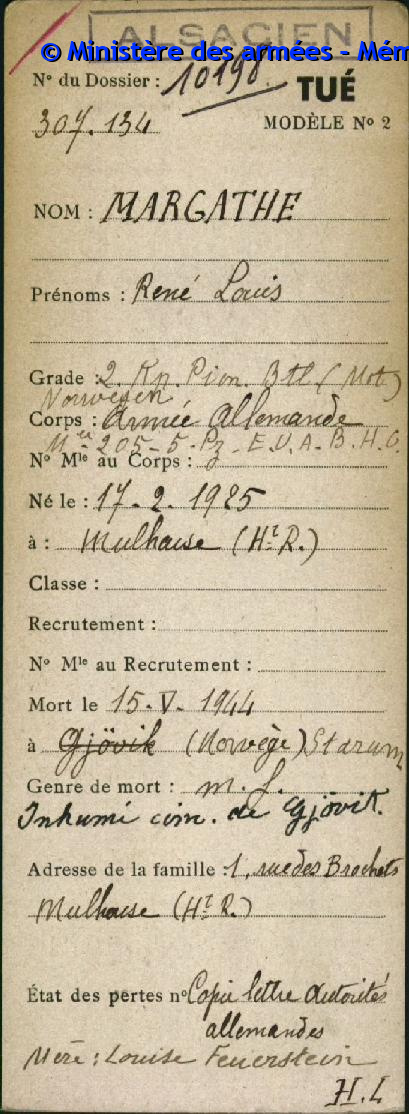 ALSACIEN
© Ministère des armées - Mém
N° du Dossier : 10198
TUÉ
307.134
MODÈLE N° 2
NOM : MARGATHE
Prénoms : René Louis
Grade : 2. Kp. Pion. Btl. (Mot)
Norwegen
Corps : Armée Allemande
N° Mle au Corps : 205-5-Pz-E.U.A-B.H.
Né le : 17-2-1925
à : Mulhouse (Ht R.)
Classe :
Recrutement :
N° Mle au Recrutement :
Mort le 15-V-1944
à Gjövik (Norvège) Starum
Genre de mort : m. f.
Inhumé cim. de Gjövik.
Adresse de la famille : 1, rue des Brochets
Mulhouse (Ht R.)
État des pertes n° Copie lettre Autorités
allemandes
Mère : Louise Feuerstein
H.L